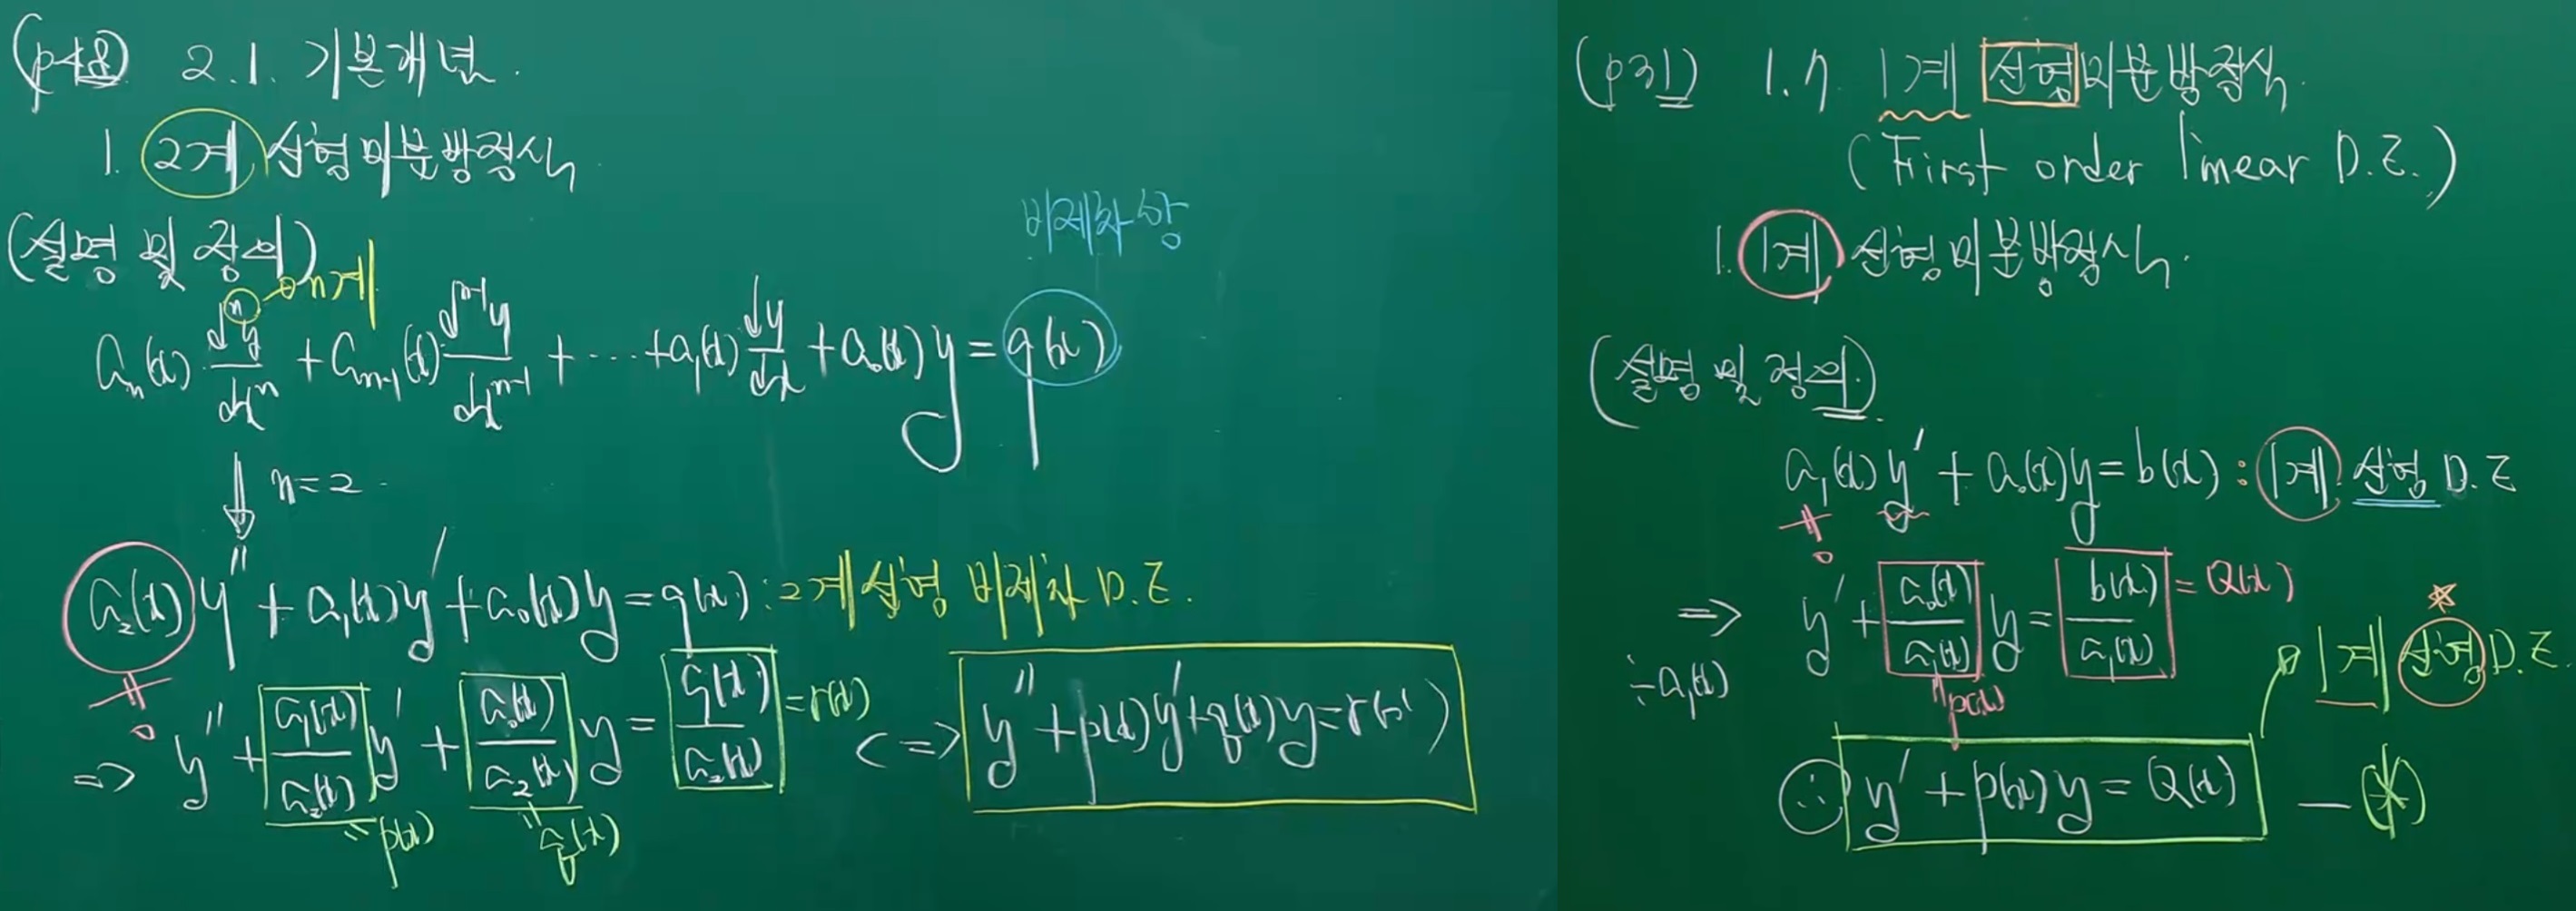 (p48) 2.1. 기본개념.
1. 2계 선형미분방정식
(설명 및 정의)
n계
비제차항
aₙ(x) dⁿy/dxⁿ + aₙ₋₁(x) dⁿ⁻¹y/dxⁿ⁻¹ + ⋯ + a₁(x) dy/dx + a₀(x) y = g(x)
↓ n=2
a₂(x) y″ + a₁(x) y′ + a₀(x) y = g(x) : 2계 선형 비제차 D.E.
≠ 0
⇒ y″ + a₁(x)/a₂(x) y′ + a₀(x)/a₂(x) y = g(x)/a₂(x) = r(x) <=> y″ + p(x)y′ + q(x)y = r(x)
= p(x) = q(x)
(p31) 1.7. 1계 선형미분방정식.
(First order linear D.E.)
1. 1계 선형미분방정식.
(설명 및 정의.)
a₁(x) y′ + a₀(x) y = b(x) : 1계 선형 D.E
≠ 0
⇒ y′ + a₀(x)/a₁(x) y = b(x)/a₁(x) = Q(x)
÷a₁(x)
= p(x)
1계 선형 D.E.
∴ y′ + p(x) y = Q(x) — (*)